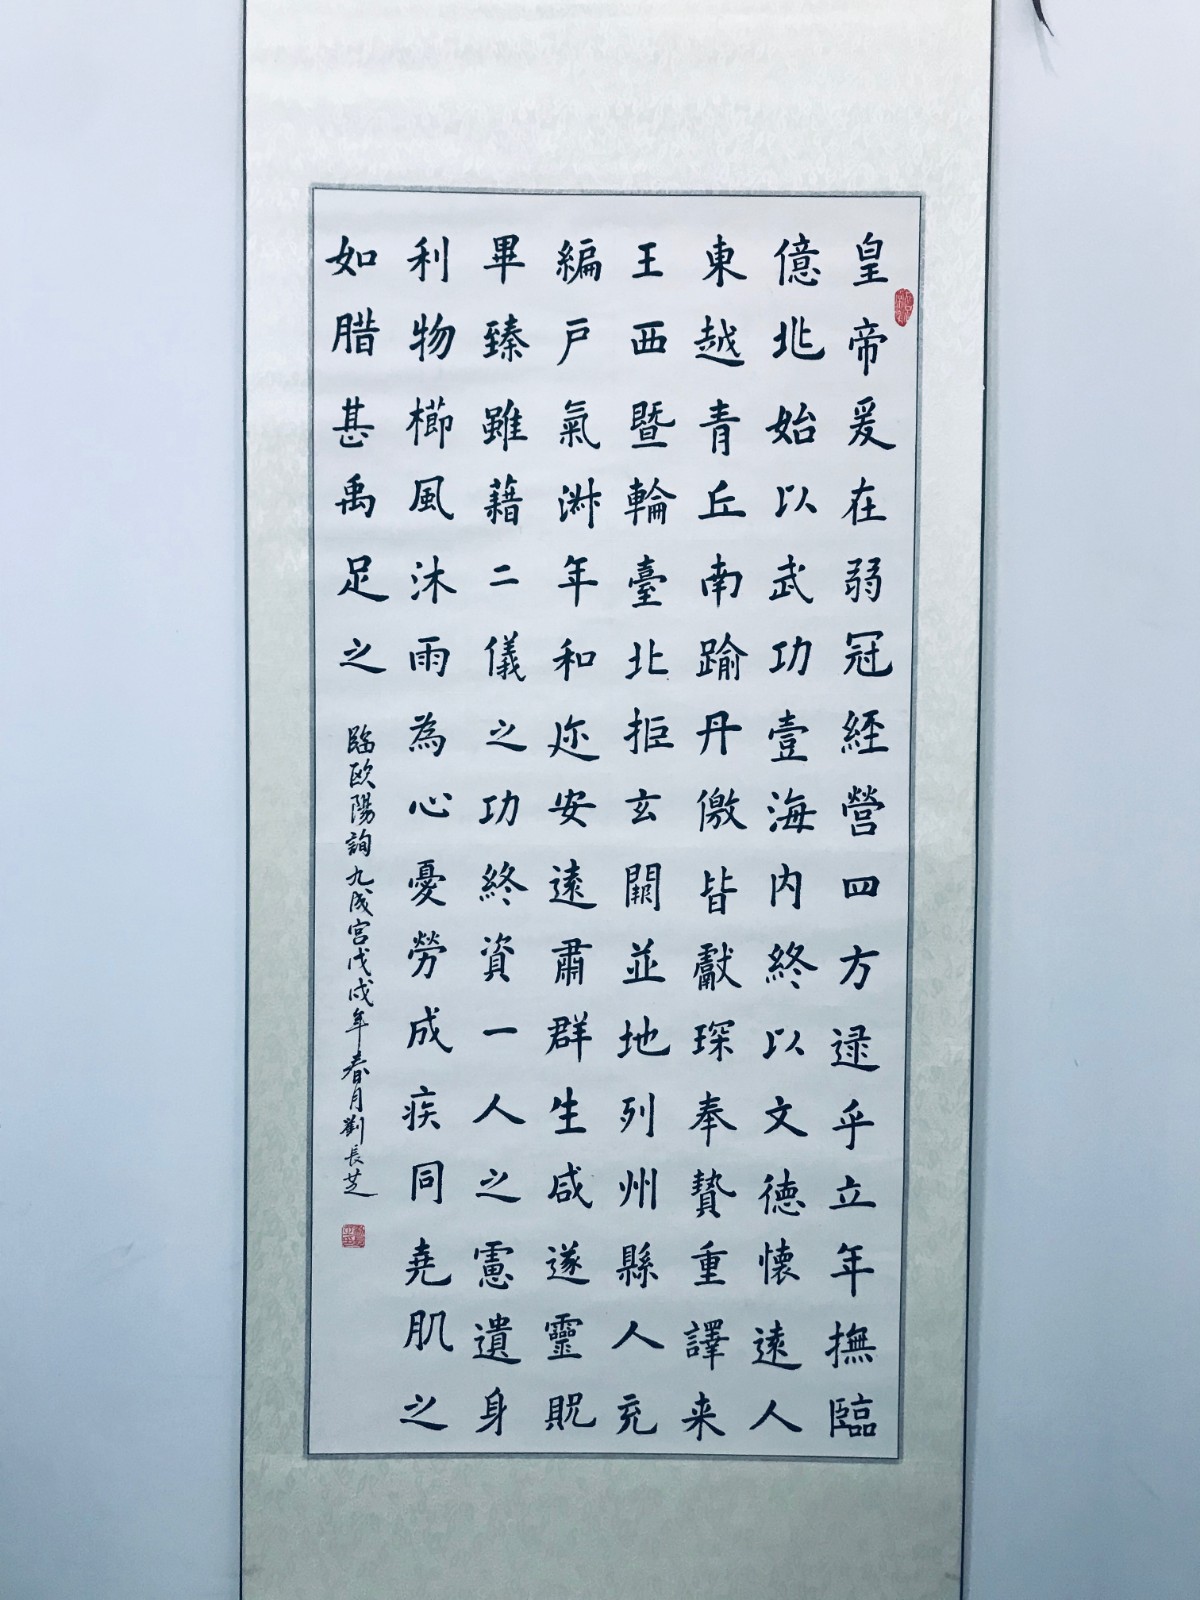 皇帝爰在弱冠經營四方逯乎立年撫臨
億兆始以武功壹海内終以文德懷遠人
東越青丘南踰丹儌皆獻琛奉贄重譯来
王西暨輪臺北拒玄闕並地列州縣人充
編戸氣淋年和迩安遠肅群生咸遂靈貺
畢臻雖藉二儀之功終資一人之慮遺身
利物櫛風沐雨為心憂勞成疾同堯肌之
如腊甚禹足之
臨歐陽詢九成宮戊戌年春月劉長芝